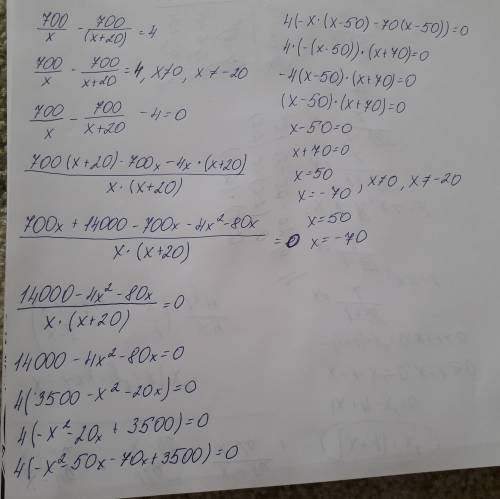 700/x - 700/(x+20) = 4
700/x - 700/x+20 = 4, x≠0, x≠-20
700/x - 700/x+20 - 4 = 0
700(x+20) - 700x - 4x·(x+20) / x·(x+20)
700x + 14000 - 700x - 4x² - 80x / x·(x+20) = 0
14000 - 4x² - 80x / x·(x+20) = 0
14000 - 4x² - 80x = 0
4(3500 - x² - 20x) = 0
4(-x² - 20x + 3500) = 0
4(-x² - 50x - 70x + 3500) = 0
4(-x·(x-50) - 70(x-50)) = 0
4·(-(x-50))·(x+70) = 0
-4(x-50)·(x+70) = 0
(x-50)·(x+70) = 0
x-50=0
x+70=0
x=50
x=-70, x≠0, x≠-20
x=50
x=-70